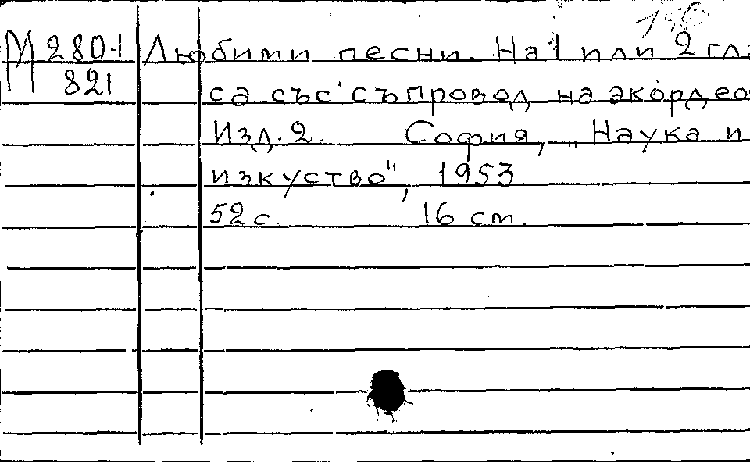 М 280-1 Любими песни. На 1 или 2 гла
821 са със съпровод на акордео
Изд. 2. София, „Наука и
изкуство", 1953
52 с. 16 см.